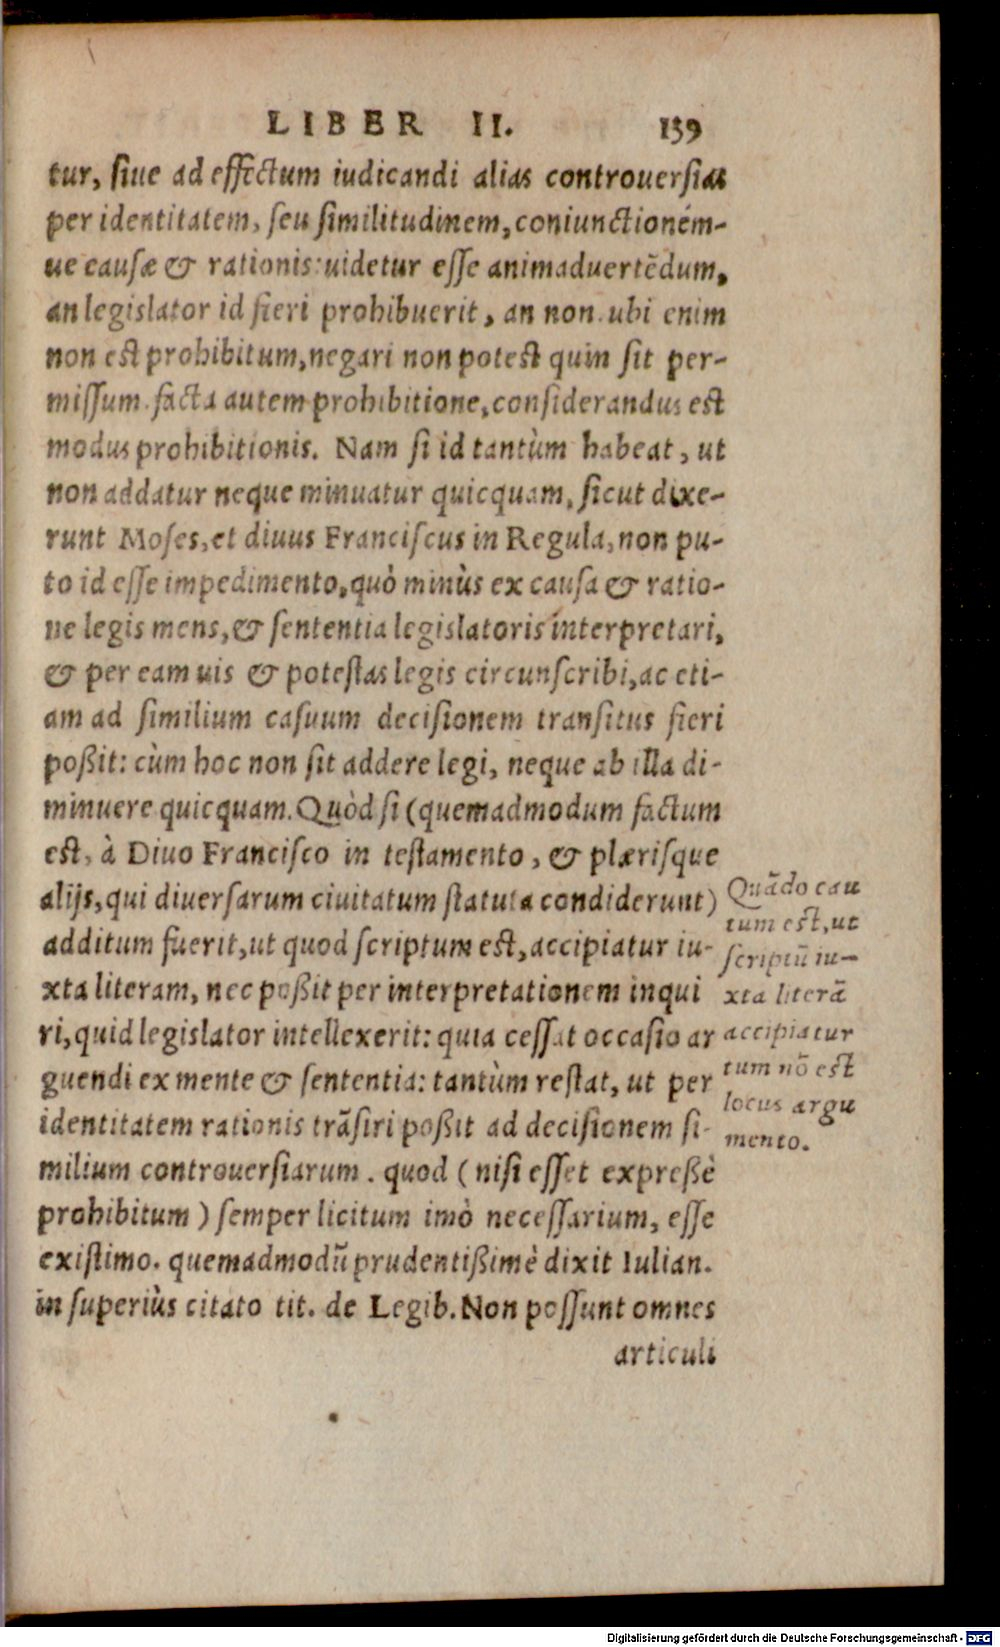 LIBER II. 139
tur, siue ad effectum iudicandi alias controuersias
per identitatem, seu similitudinem, coniunctioném-
ue causæ & rationis: uidetur esse animaduertēdum,
an legislator id fieri prohibuerit, an non. ubi enim
non est prohibitum, negari non potest quin sit per-
missum. facta autem prohibitione, considerandus est
modus prohibitionis. Nam si id tantùm habeat, ut
non addatur neque minuatur quicquam, sicut dixe-
runt Moses, et diuus Franciscus in Regula, non pu-
to id esse impedimento, quò minùs ex causa & ratio-
ne legis mens, & sententia legislatoris interpretari,
& per eam uis & potestas legis circunscribi, ac eti-
am ad similium casuum decisionem transitus fieri
poßit: cùm hoc non sit addere legi, neque ab illa di-
minuere quicquam. Quòd si (quemadmodum factum
est, à Diuo Francisco in testamento, & plærisque
alijs, qui diuersarum ciuitatum statuta condiderunt)
additum fuerit, ut quod scriptum est, accipiatur iu-
xta literam, nec poßit per interpretationem inqui
ri, quid legislator intellexerit: quia cessat occasio ar
guendi ex mente & sententia: tantùm restat, ut per
identitatem rationis trāsiri poßit ad decisionem si-
milium controuersiarum. quod (nisi esset expreßè
prohibitum) semper licitum imò necessarium, esse
existimo. quemadmodū prudentißimè dixit Iulian.
in superiùs citato tit. de Legib. Non possunt omnes
articuli
Quādo cau
tum est, ut
scriptū iu-
xta literā
accipiatur
tum nō est
locus argu
mento.
Digitalisierung gefördert durch die Deutsche Forschungsgemeinschaft - DFG